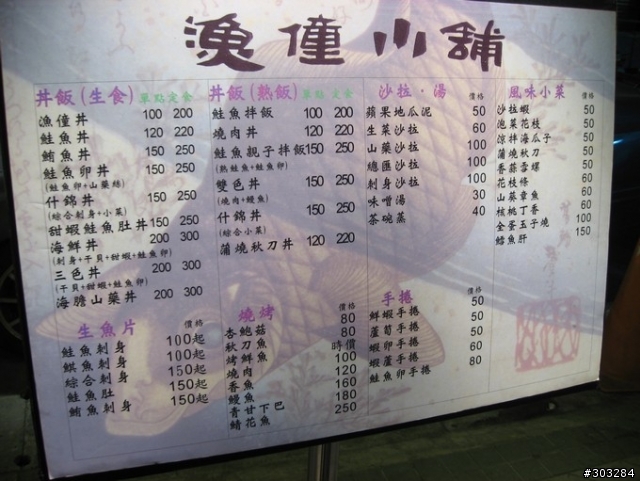 漁僮小舖
丼飯(生食) 單點 定食
漁僮丼 100 200
鮭魚丼 120 220
鮪魚丼 150 250
鮭魚卵丼 150 250
(鮭魚卵+山藥絲)
什錦丼 150 250
(綜合刺身+小菜)
甜蝦鮭魚肚丼 150 250
海鮮丼 200 300
(刺身+干貝+甜蝦+鮭魚卵)
三色丼 200 300
(干貝+甜蝦+鮭魚卵)
海膽山藥丼 200 300
丼飯(熟飯) 單點 定食
鮭魚拌飯 100 200
燒肉丼 120 220
鮭魚親子拌飯 150 250
(熟鮭魚+鮭魚卵)
雙色丼 150 250
(燒肉+鰻魚)
什錦丼 150 250
(綜合小菜)
蒲燒秋刀丼 120 220
沙拉・湯 價格
蘋果地瓜泥 50
生菜沙拉 50
山藥沙拉 100
總匯沙拉 100
刺身沙拉 100
味噌湯 30
茶碗蒸 40
風味小菜 價格
沙拉蝦 50
泡菜花枝 50
涼拌海瓜子 50
蒲燒秋刀 50
香蒜雪螺 50
花枝條 60
山葵章魚 60
核桃丁香 60
全蛋玉子燒 100
鱈魚肝 150
生魚片 價格
鮭魚刺身 100起
鯕魚刺身 100起
綜合刺身 150起
鮭魚肚 150起
鮪魚刺身 150起
燒烤 價格
杏鮑菇 80
秋刀魚 80
烤鮮魚 時價
燒肉 100
香魚 120
鰻魚 160
青甘下巴 180
鯖花魚 250
手捲 價格
鮮蝦手捲 50
蘆筍手捲 50
蝦卵手捲 50
蝦蘆手捲 60
鮭魚卵手捲 80
#303284